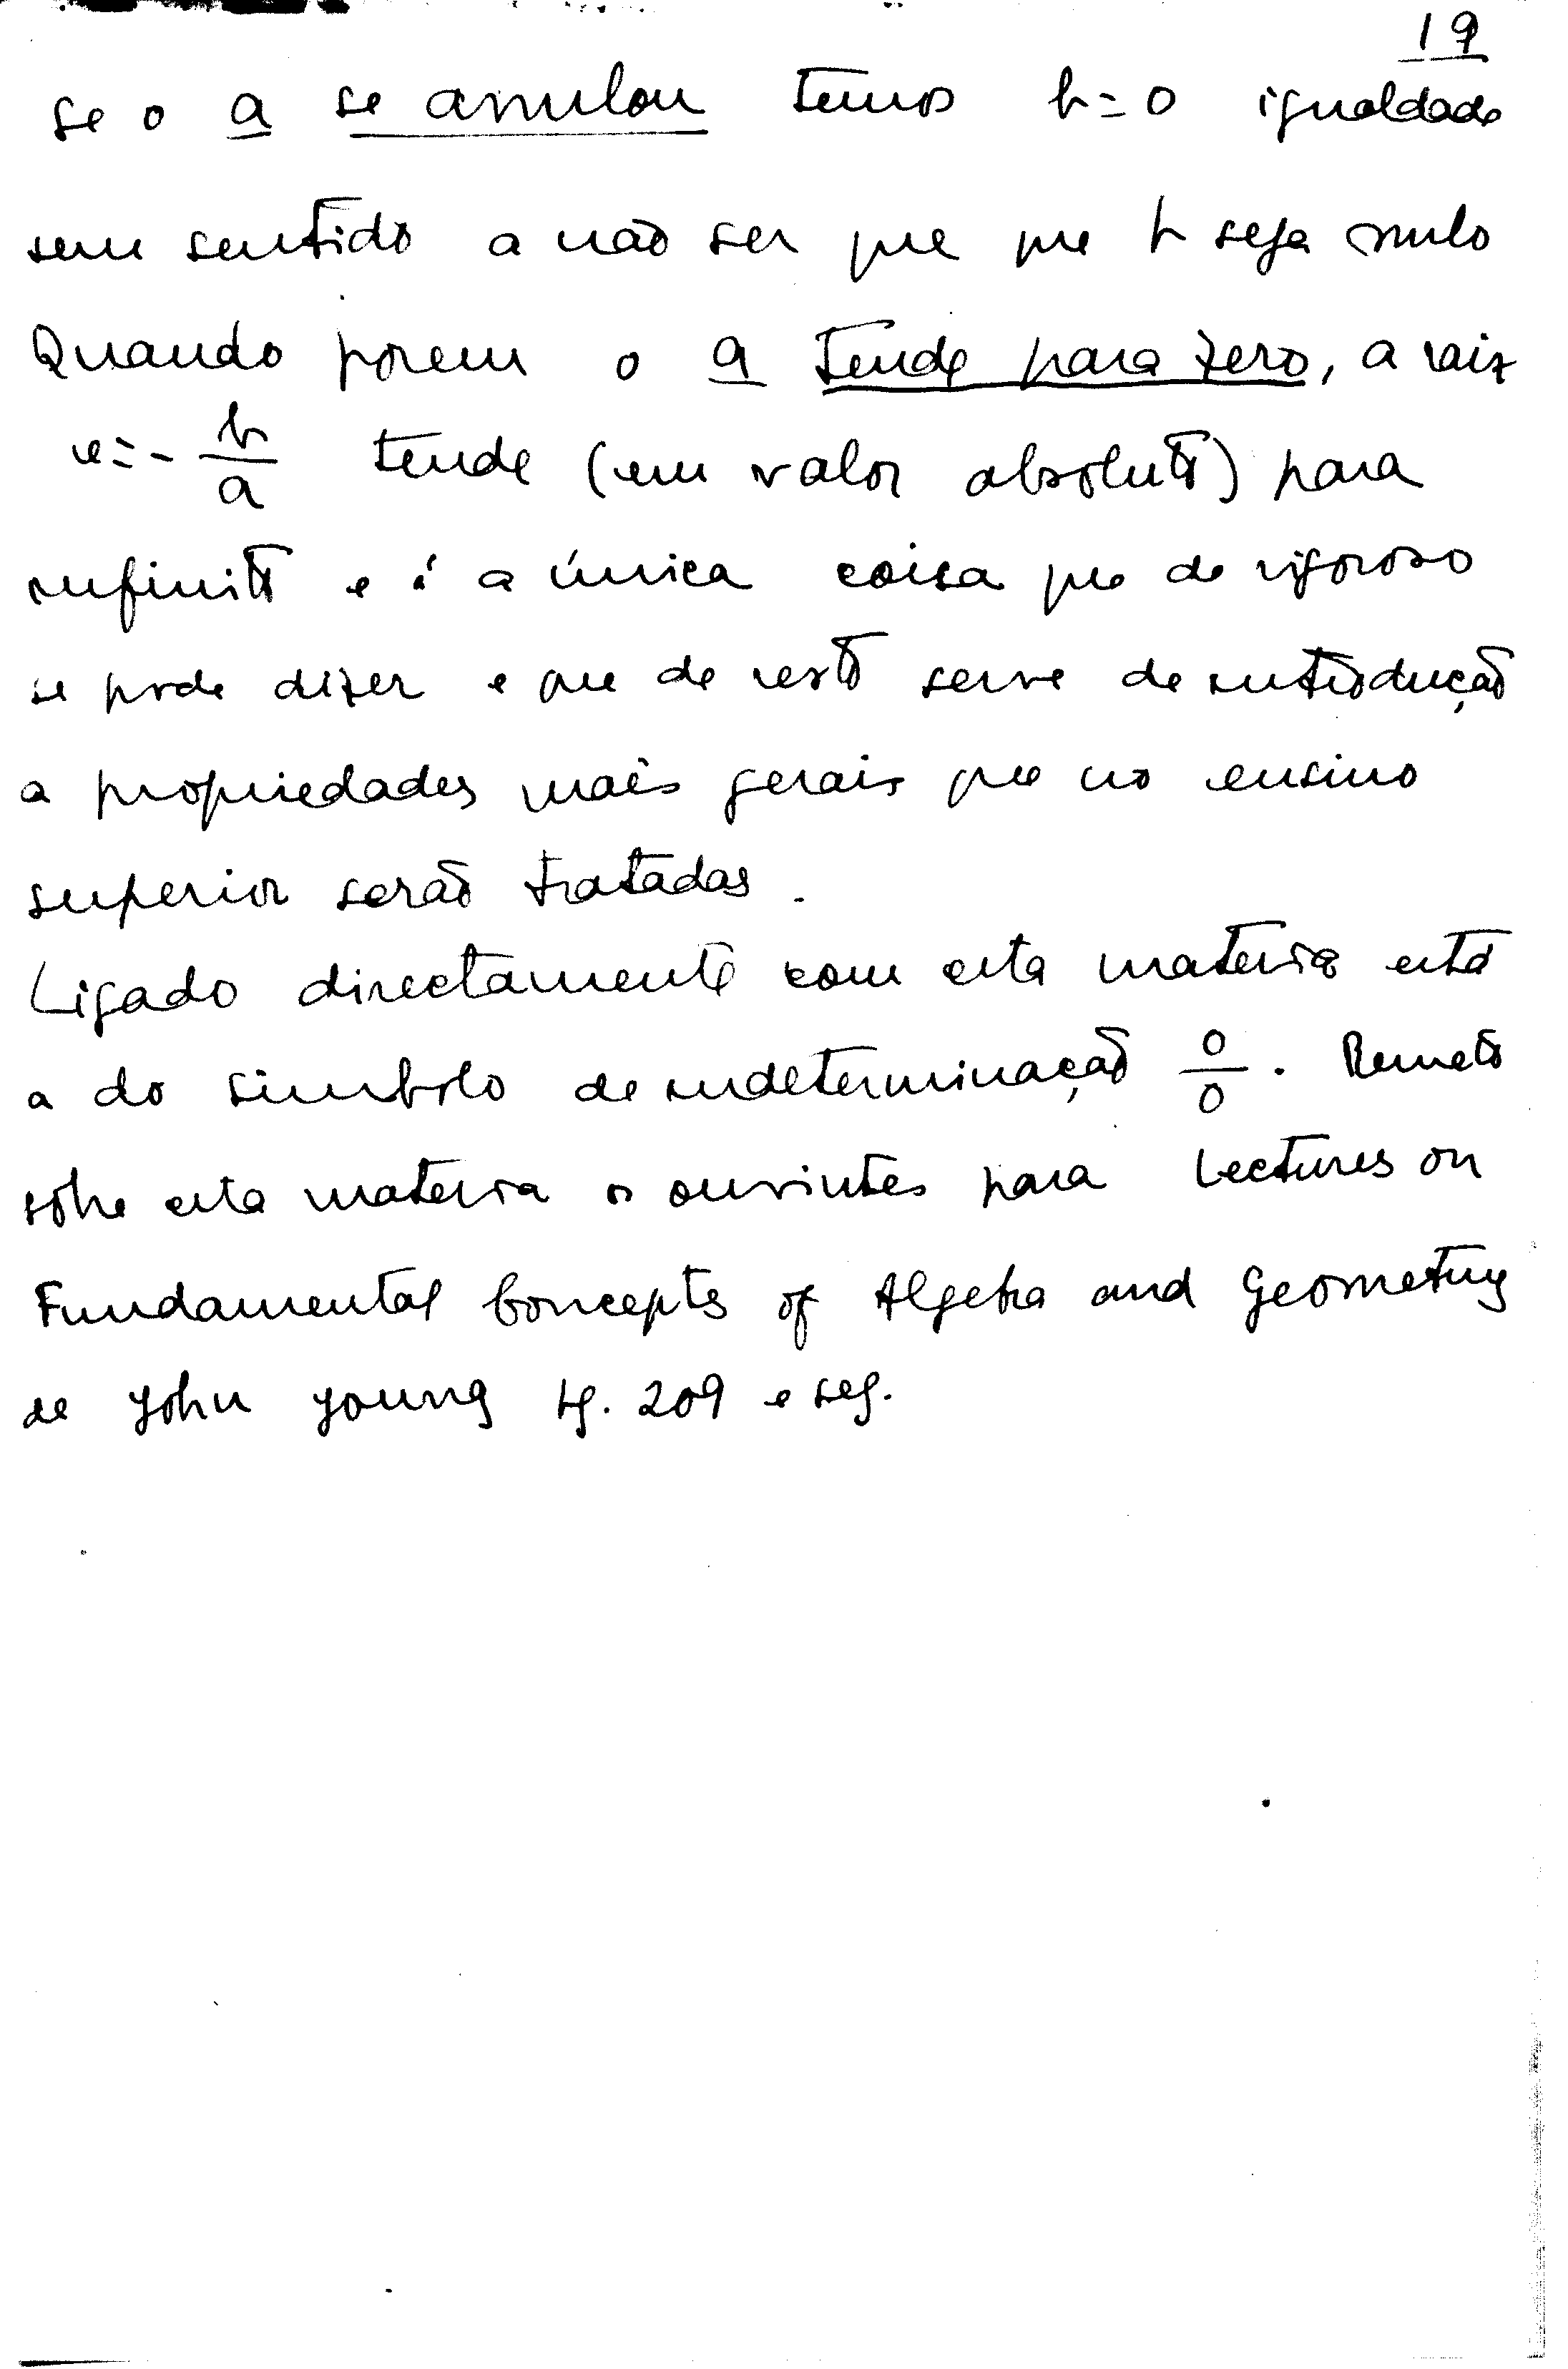 19
se o a se anulou temos b=0 igualdade
sem sentido a não ser que que b seja nulo
Quando porem o a tende para zero, a raiz
x=-b/a tende (em valor absoluto) para
infinito e é a única coisa que de rigoroso
se pode dizer e que de resto serve de introdução
a propriedades mais gerais que no ensino
superior serão tratadas.
Ligado directamente com esta materia está
a do simbolo de indeterminação 0/0. Remeto
sôbre esta materia os ouvintes para Lectures on
Fundamental Concepts of Algebra and Geometry
de John Young pg. 209 e seg.